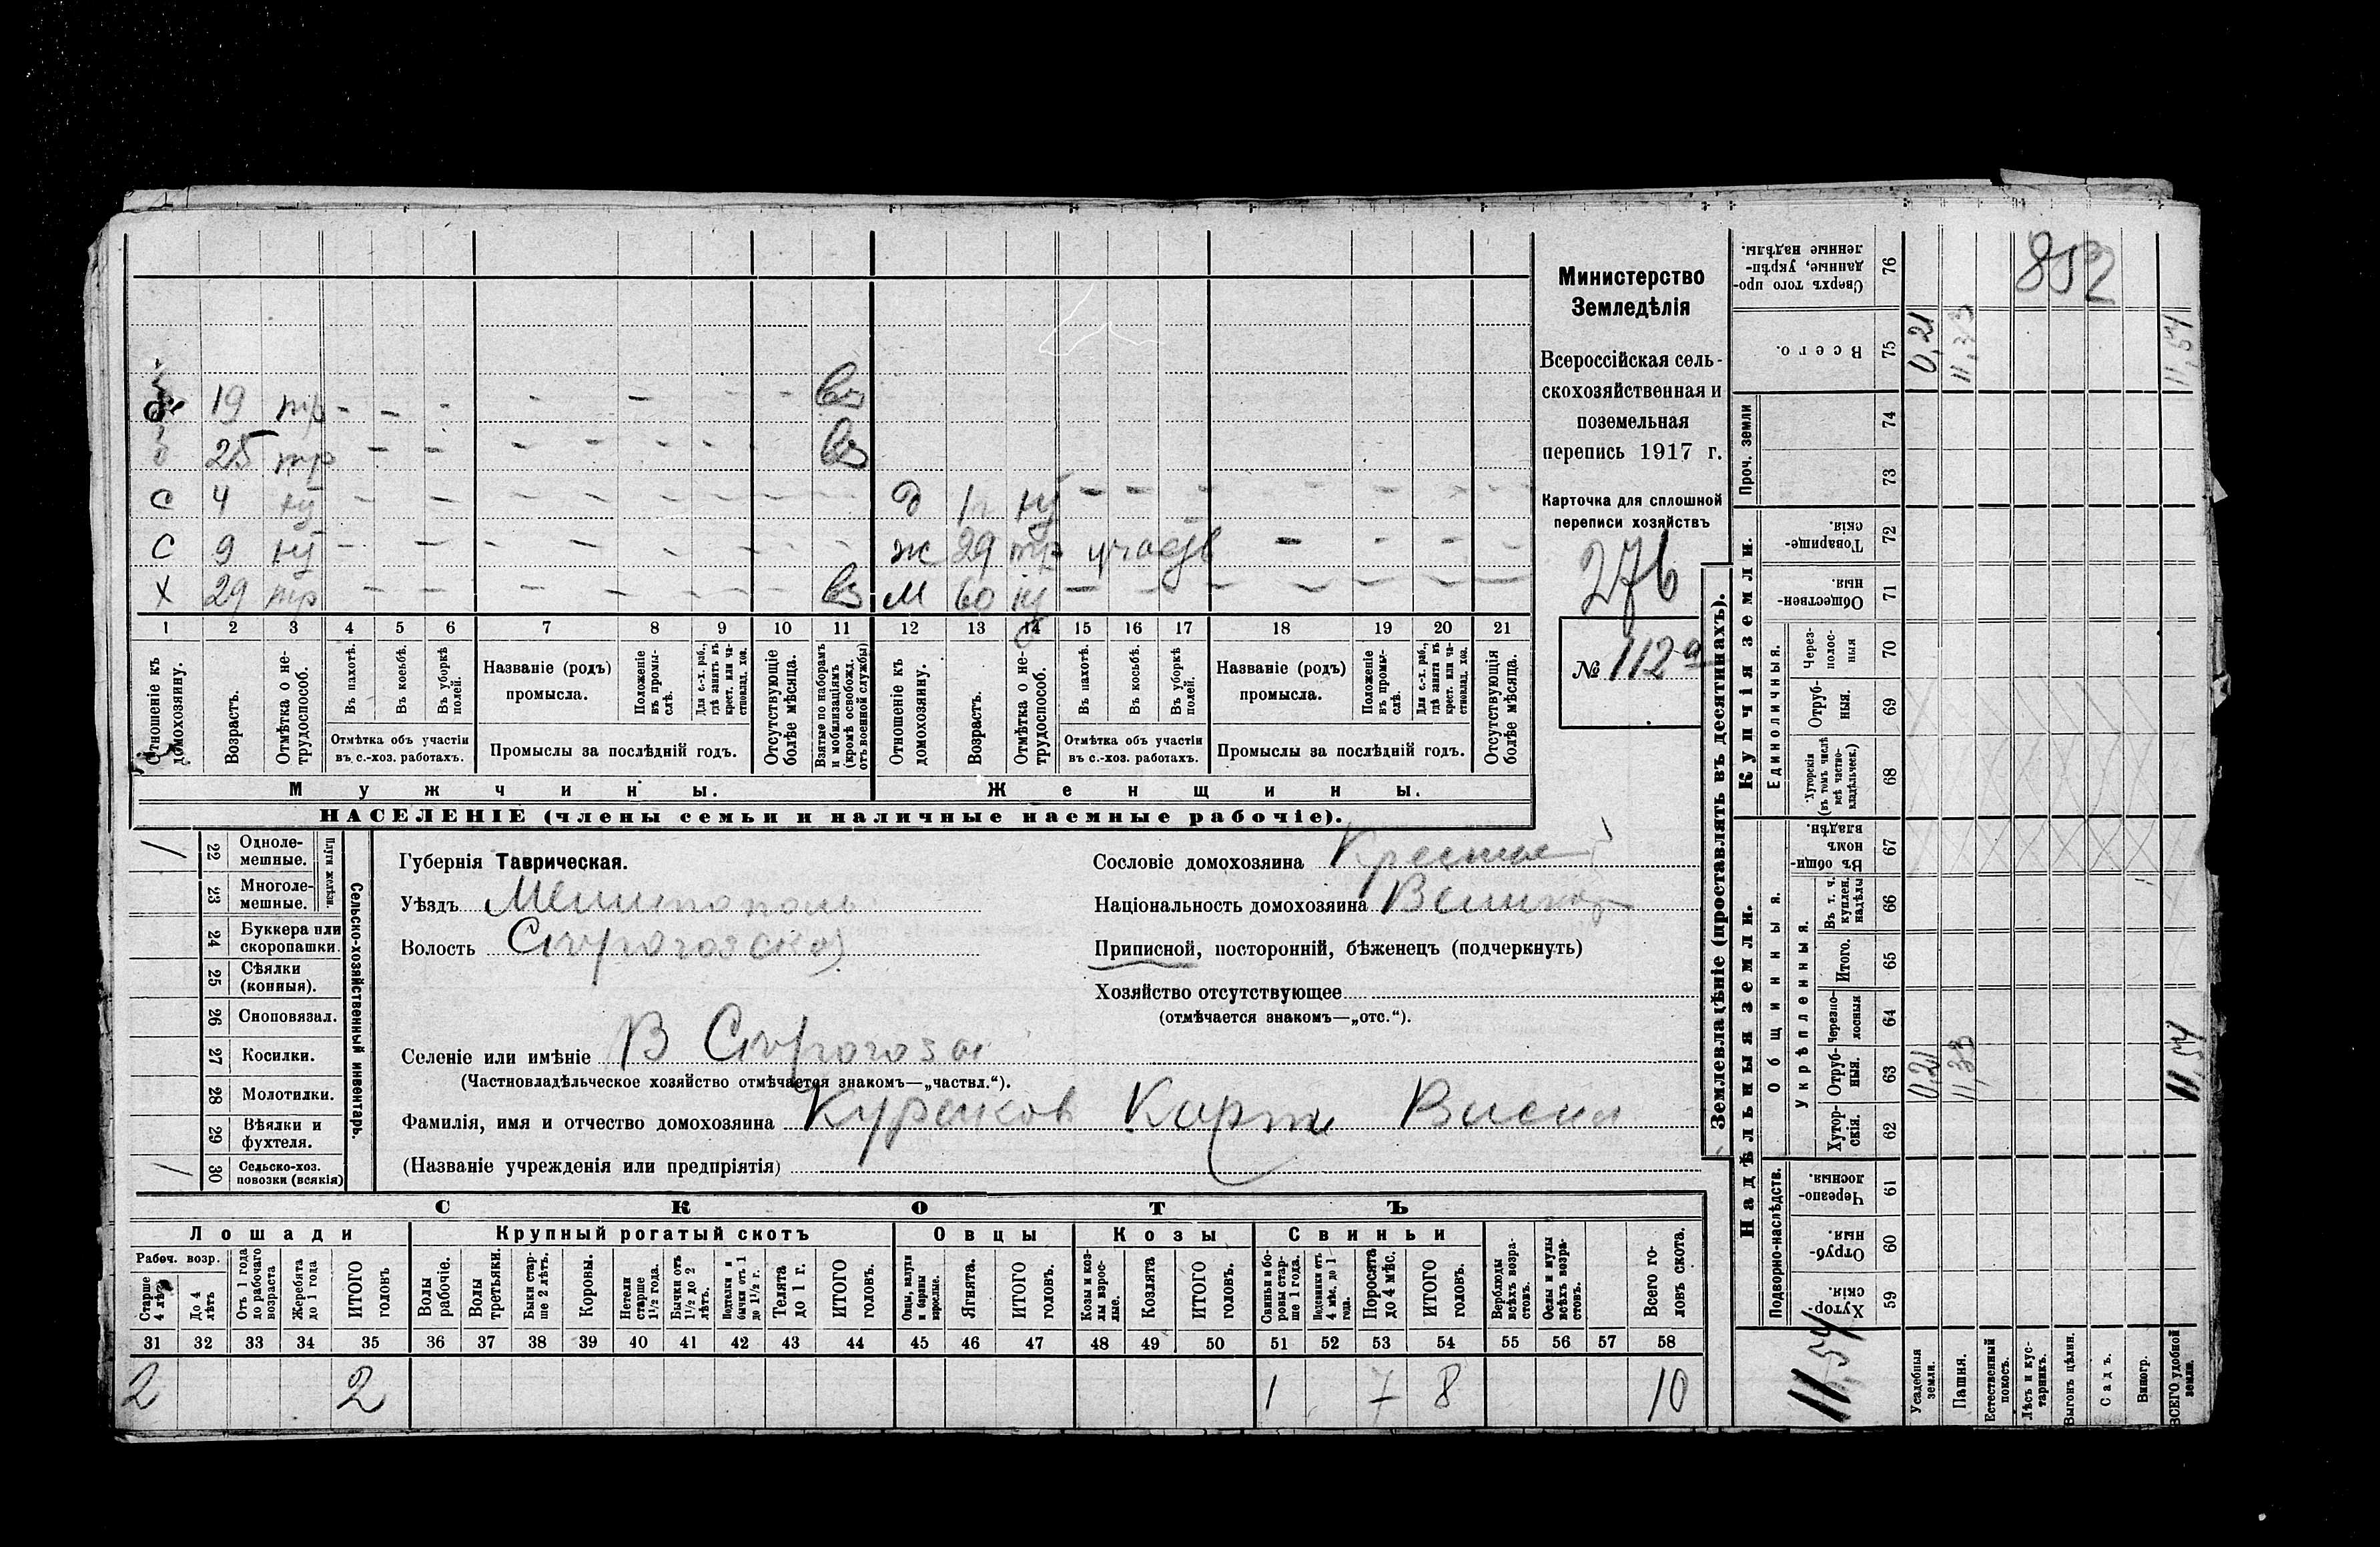 Министерство
Земледѣлія
Всероссійская сель-
скохозяйственная и
поземельная
перепись 1917 г.
Карточка для сплошной
переписи хозяйствъ
276
№ 112а
19 тр - - - - - - вз
25 тр - - - - - - вз
с 4 ну - - - - - - - д 1 ну - - - - - -
с 9 ну - - - - - - - ж 29 тр - - - -
х 29 тр - - - - - - вз м 60 ну - - - - - - -
1 2 3 4 5 6 7 8 9 10 11 12 13 14 15 16 17 18 19 20 21
Отношеніе къ домохозяину.
Возрастъ.
Отмѣтка о не-трудоспособ.
Въ пахотѣ.
Въ косьбѣ.
Въ уборкѣ полей.
Отмѣтка объ участіи
въ с.-хоз. работахъ.
Названіе (родъ)
промысла.
Положеніе въ промы-слѣ.
Для с.-х. раб., гдѣ занятъ въ крест. или ча-стновлад. хоз.
Промыслы за послѣдній годъ.
Отсутствующіе болѣе мѣсяца.
Взятые по наборамъ и мобилизаціямъ (кромѣ освобожд. отъ военной службы)
Отношеніе къ домохозяину.
Возрастъ.
Отмѣтка о не-трудоспособ.
Въ пахотѣ.
Въ косьбѣ.
Въ уборкѣ полей.
Отмѣтка объ участіи
въ с.-хоз. работахъ.
Названіе (родъ)
промысла.
Положеніе въ промы-слѣ.
Для с.-х. раб., гдѣ занята въ крест. или ча-стновлад. хоз.
Промыслы за послѣдній годъ.
Отсутствующія болѣе мѣсяца.
Мужчины. Женщины.
НАСЕЛЕНІЕ (члены семьи и наличные наемные рабочіе).
Сельско-хозяйственный инвентарь.
Плуги желѣзн.
/ 22 Одноле-мешные.
23 Многоле-мешные.
24 Буккера или скоропашки.
25 Сѣялки (конныя).
26 Сноповязал.
27 Косилки.
28 Молотилки.
29 Вѣялки и фухтеля.
/ 30 Сельско-хоз. повозки (всякія)
Губернія Таврическая.
Уѣздъ Мелитополь
Волость
Селеніе или имѣніе В
(Частновладѣльческое хозяйство отмѣчается знакомъ—„частвл.“).
Фамилія, имя и отчество домохозяина
(Названіе учрежденія или предпріятія)
Сословіе домохозяина
Національность домохозяина
Приписной, посторонній, бѣженецъ (подчеркнуть)
Хозяйство отсутствующее
(отмѣчается знакомъ—„отс.“).
СКОТЪ
Лошади Крупный рогатый скотъ Овцы Козы Свиньи
Рабоч. возр.
Старше 4 лѣтъ
До 4 лѣтъ
Отъ 1 года до рабочаго возраста
Жеребята до 1 года
ИТОГО головъ
Волы рабочіе.
Волы третьяки.
Быки стар-ше 2 лѣтъ.
Коровы.
Нетели старше 1½ года.
Бычки отъ 1½ до 2 лѣтъ.
Подтелки и бычки отъ 1 до 1½ г.
Телята до 1 г.
ИТОГО головъ.
Овцы, валухи и бараны взрослые.
Ягнята.
ИТОГО головъ.
Козы и коз-лы взрос-лые.
Козлята
ИТОГО головъ.
Свиньи и бо-ровы стар-ше 1 года.
Подсвинки отъ 4 мѣс. до 1 года.
Поросята до 4 мѣс.
ИТОГО головъ.
Верблюды всѣхъ возра-стовъ.
Ослы и мулы всѣхъ возра-стовъ.
Всего го-ловъ скота.
31 32 33 34 35 36 37 38 39 40 41 42 43 44 45 46 47 48 49 50 51 52 53 54 55 56 57 58
2 2 1 7 8 10
Землевладѣніе (проставлять въ десятинахъ).
Надѣльныя земли.
Купчія земли.
Проч. земли
Подворно-наслѣдств.
Общинныя.
Укрѣпленныя.
Единоличныя.
Хутор-скія. 59
Отруб-ныя. 60
Черезпо-лосныя 61
Хутор-скія. 62
Отруб-ныя. 63
Черезпо-лосныя 64
Итого. 65
Въ т. ч. куплен. надѣлы 66
Въ общин-номъ владѣн. 67
Хуторскія (въ томъ числѣ всѣ частно-владѣльческ.) 68
Отруб-ныя. 69
Через-полос-ныя 70
Обществен-ныя. 71
Товарище-скія. 72
73
74
Всего. 75
Сверхъ того про-данные, укрѣп-ленные надѣлы. 76
852
11,54
Усадебныя земли. 0,21 0,21
Пашня. 11,33 11,33
Естественный покосъ.
Лѣсъ и кус-тарникъ.
Выгонъ цѣлин.
Садъ.
Виногр.
ВСЕГО удобной земли. 11,54 11,54